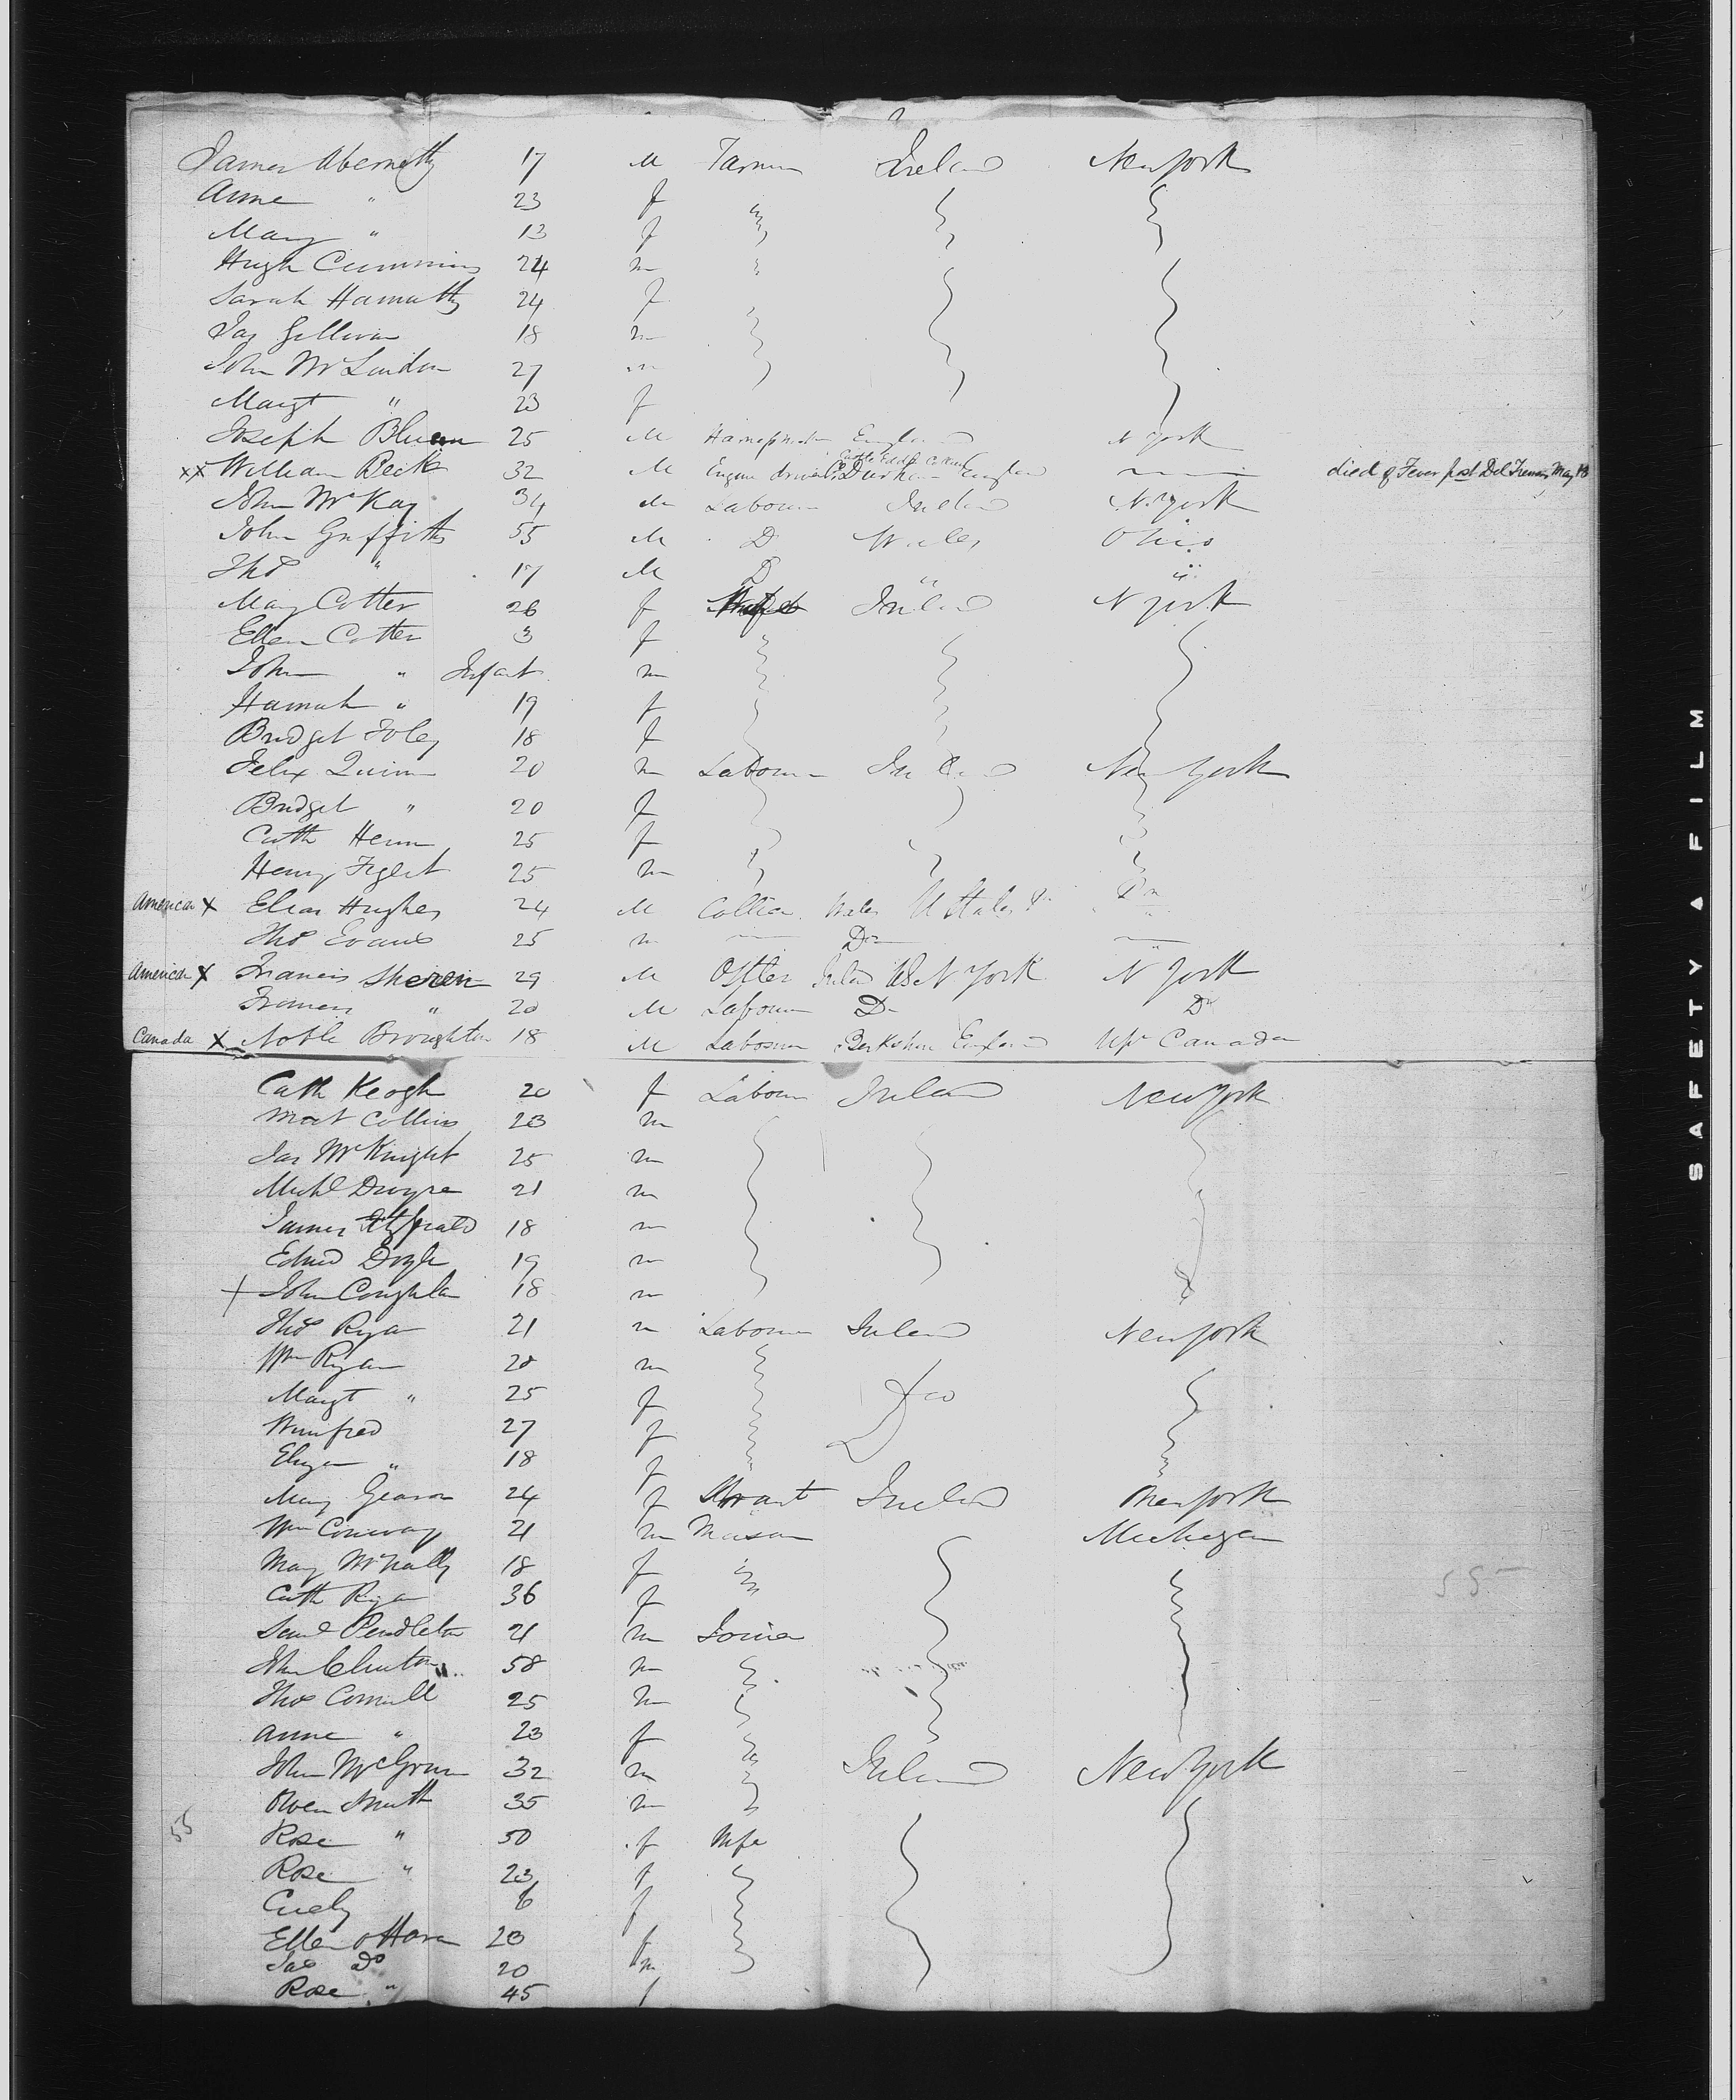 James Abernethy 17 M Farmer Ireland New York
Anne " 23 f
Mary " 13 f
Hugh Cummins 24 m
Sarah 24 f
Jas 18 m
John 27 m
Margt " 23 f
Joseph 25 M England N York
xx William Beck 32 M Engine driver Durham England died of Fever May 13
John McKay 34 M Labourer Ireland N. York
John Griffiths 55 M D Wales Ohio
Thos " 17 M D " "
Mary Cotter 26 f Ireland N York
Ellen Cotter 3 f
John " Infant m
Hannah " 19 f
Bridget Foley 18 f
Felix Quinn 20 m Labourer Ireland New York
Bridget " 20 f
Cath 25 f
Henry 25 m
American X Elias Hughes 24 M Collier Wales U States Do
Thos Evans 25 m Do
American X Francis Sheren 29 M Ostler Ireland N York N York
20 M Labourer Do Do
Canada X Noble Broughton 18 M Labourer Berkshire England Upr Canada
Cath Keogh 20 f Labour Ireland New York
Mat Collins 23 m
Jas McKnight 25 m
Michl Dwyre 21 m
James Fitzgerald 18 m
Edwd Doyle 19 m
+ John Coughlan 18 m
Thos Ryan 21 m Labourer Ireland New York
Wm Ryan 28 m
Margt " 25 f Do
Winifred 27 f
Eliza " 18 f
Mary 24 f Servant Ireland New York
Wm Conway 21 m Mason Michegan
Mary McNally 18 f
Cath Ryan 36 f
55
Saml Pendleton 21 m Joiner
John Clinton 58 m
Thos 25 m
Anne " 23 f
John 32 m Ireland New York
Owen Smith 35 m
55
Rose " 50 f Wife
Rose " 23 f
6 f
Ellen O Hara 20 f
Jas Do 20 m
Rose " 45 f
SAFETY FILM